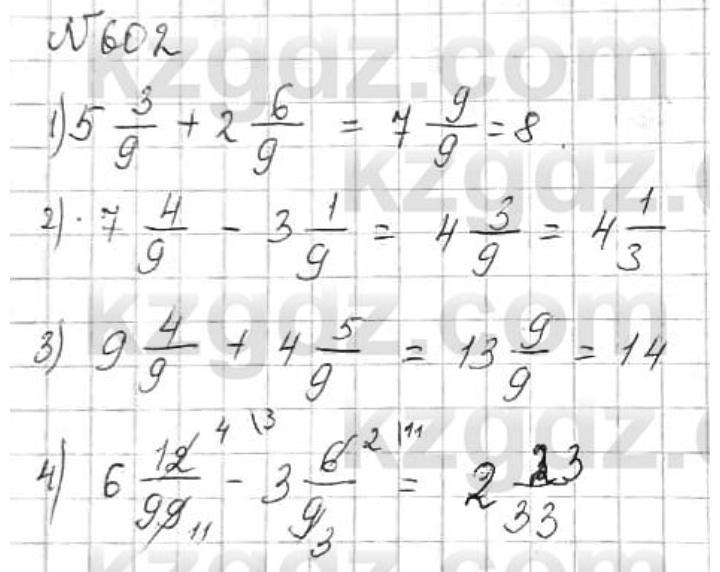 №602
1) 5 3/9 + 2 6/9 = 7 9/9 = 8.
2) 7 4/9 - 3 1/9 = 4 3/9 = 4 1/3
3) 9 4/9 + 4 5/9 = 13 9/9 = 14
4) 6 12/99 4 \3 11 - 3 6/9 2 \11 3 = 2 /33
kzgdz.com